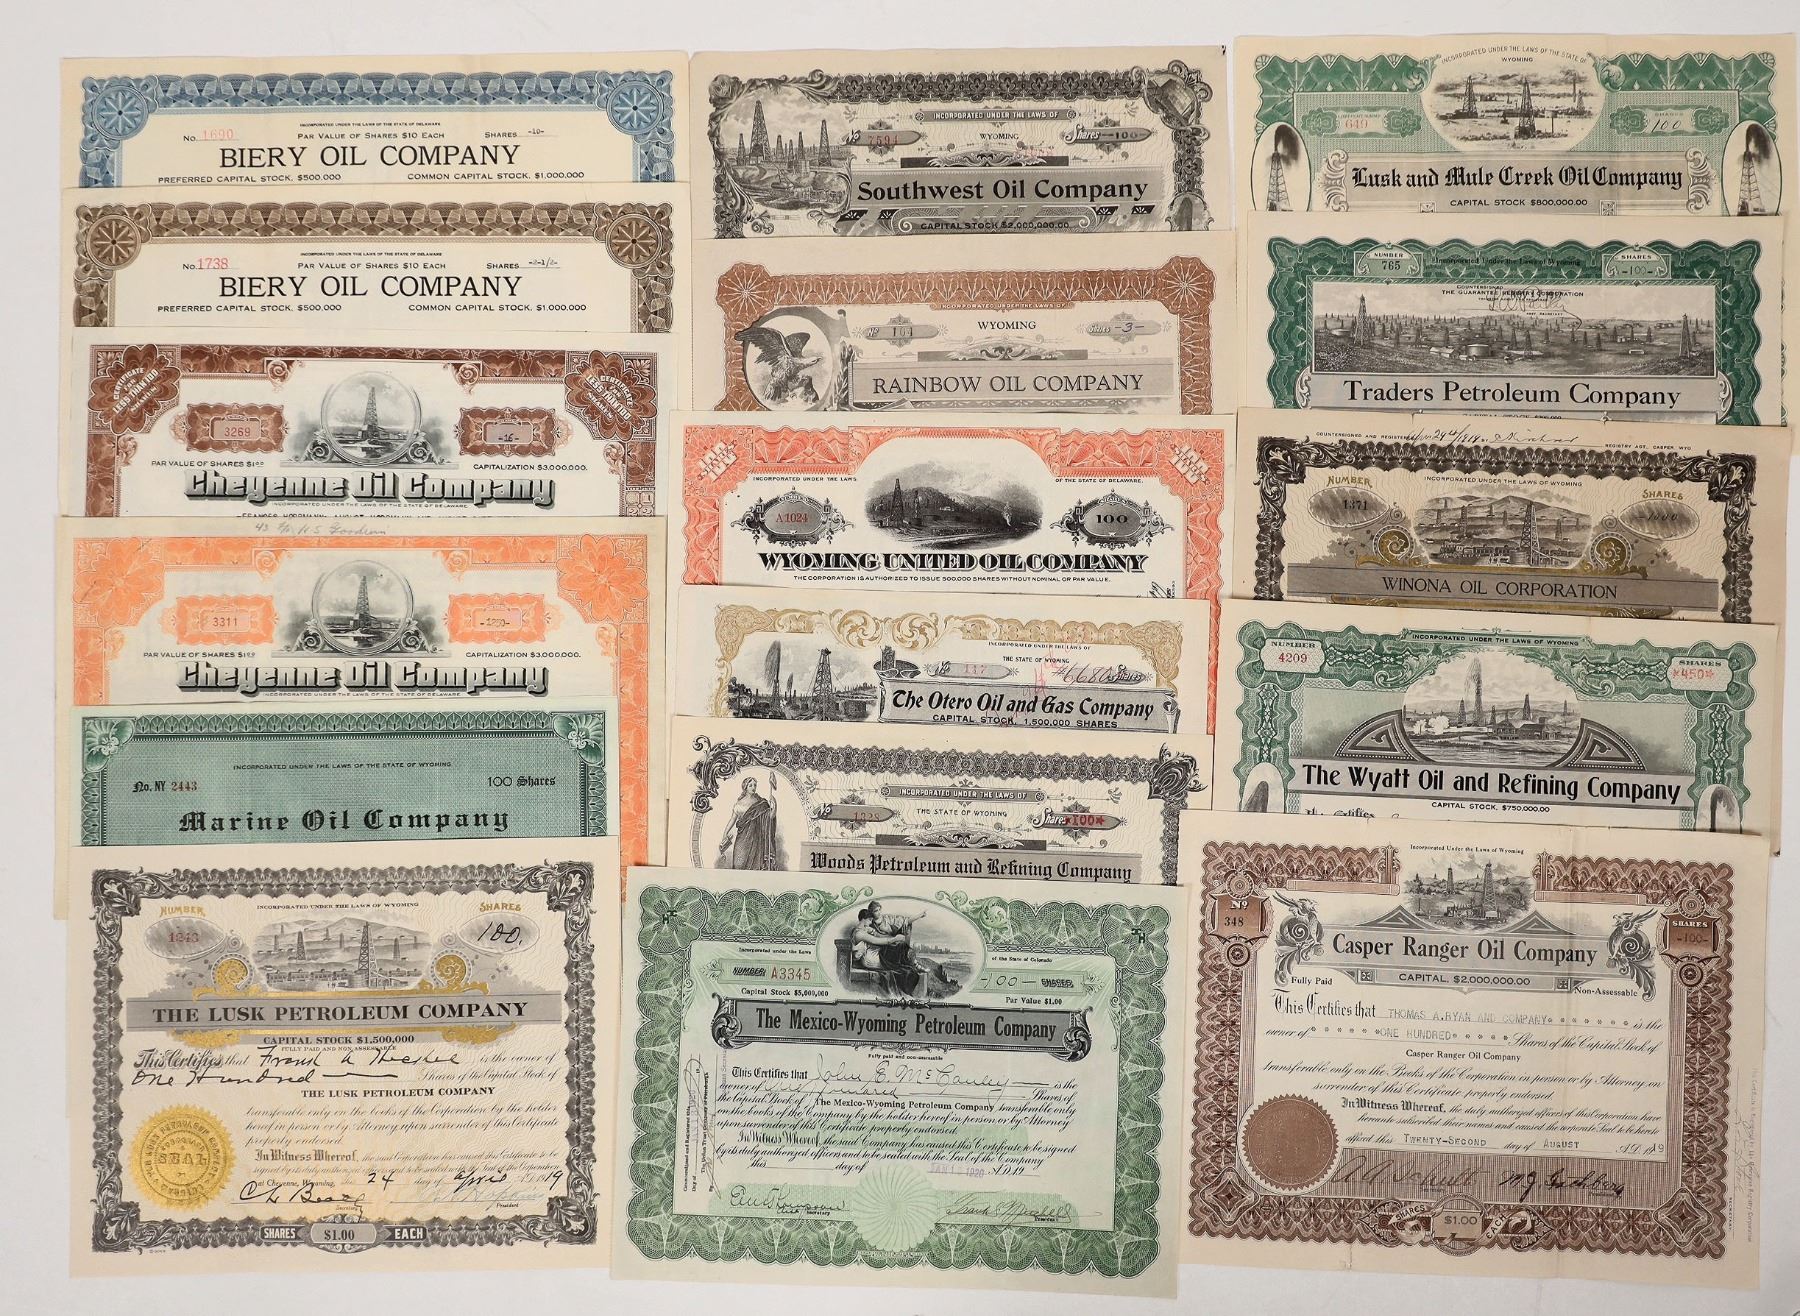 INCORPORATED UNDER THE LAWS OF THE STATE OF DELAWARE
No. 1690 PAR VALUE OF SHARES $10 EACH SHARES -10-
BIERY OIL COMPANY
PREFERRED CAPITAL STOCK, $500,000 COMMON CAPITAL STOCK, $1,000,000
INCORPORATED UNDER THE LAWS OF THE STATE OF DELAWARE
No. 1738 PAR VALUE OF SHARES $10 EACH SHARES -2-1/2-
BIERY OIL COMPANY
PREFERRED CAPITAL STOCK, $500,000 COMMON CAPITAL STOCK, $1,000,000
CERTIFICATE FOR LESS THAN 100 SHARES
CERTIFICATE FOR LESS THAN 100 SHARES
3269 -16-
PAR VALUE OF SHARES $1.00 CAPITALIZATION $3,000,000.
Cheyenne Oil Company
INCORPORATED UNDER THE LAWS OF THE STATE OF DELAWARE
3311 -1250-
PAR VALUE OF SHARES $1.00 CAPITALIZATION $3,000,000.
Cheyenne Oil Company
INCORPORATED UNDER THE LAWS OF THE STATE OF DELAWARE
INCORPORATED UNDER THE LAWS OF THE STATE OF WYOMING
No. NY 2443 100 Shares
Marine Oil Company
NUMBER INCORPORATED UNDER THE LAWS OF WYOMING SHARES
1243 100.
THE LUSK PETROLEUM COMPANY
CAPITAL STOCK $1,500,000
FULLY PAID AND NON-ASSESSABLE
This Certifies that Frank A is the owner of
One Hundred Shares of the Capital Stock of
THE LUSK PETROLEUM COMPANY
transferable only on the books of the Corporation by the holder
hereof in person or by Attorney upon surrender of this Certificate
properly endorsed.
In Witness Whereof, the said Corporation has caused this Certificate to be
signed by its duly authorized officers and to be sealed with the Seal of the Corporation
at Cheyenne, Wyoming, this 24 day of April A.D. 1919
Secretary President
SHARES $1.00 EACH
INCORPORATED UNDER THE LAWS OF
WYOMING
No 7594 Shares -100-
Southwest Oil Company
CAPITAL STOCK $2,000,000.00
INCORPORATED UNDER THE LAWS OF
WYOMING
No 104 Shares -3-
RAINBOW OIL COMPANY
INCORPORATED UNDER THE LAWS OF THE STATE OF DELAWARE.
A1024 100
WYOMING UNITED OIL COMPANY
THE CORPORATION IS AUTHORIZED TO ISSUE 500,000 SHARES WITHOUT NOMINAL OR PAR VALUE.
INCORPORATED UNDER THE LAWS OF
THE STATE OF WYOMING
No 117 6680 Shares
The Otero Oil and Gas Company
CAPITAL STOCK, 1,500,000 SHARES
INCORPORATED UNDER THE LAWS OF
THE STATE OF WYOMING
No 1328 Shares *100*
Woods Petroleum and Refining Company
Incorporated under the Laws of the State of Colorado
NUMBER A3345 -100- SHARES
Capital Stock $5,000,000 Par Value $1.00
The Mexico-Wyoming Petroleum Company
Fully paid and non-assessable
This Certifies that John E. McCauley is the
owner of One Hundred Shares of
the Capital Stock of The Mexico-Wyoming Petroleum Company transferable only
on the books of the Company by the holder hereof in person or by Attorney
upon surrender of this Certificate properly endorsed.
In Witness Whereof, the said Company has caused this Certificate to be signed
by its duly authorized officers and to be sealed with the Seal of the Company
this day of JAN 1920 A.D. 19
Secretary President
INCORPORATED UNDER THE LAWS OF THE STATE OF
WYOMING
649 SHARES 100
Lusk and Mule Creek Oil Company
CAPITAL STOCK $800,000.00
NUMBER 765 Incorporated Under the Laws of Wyoming SHARES -100-
COUNTERSIGNED
THE GUARANTEE REGISTRY CORPORATION
Traders Petroleum Company
COUNTERSIGNED AND REGISTERED REGISTRY AGT. CASPER, WYO
NUMBER INCORPORATED UNDER THE LAWS OF WYOMING SHARES
1371 -1000
WINONA OIL CORPORATION
INCORPORATED UNDER THE LAWS OF WYOMING
NUMBER 4209 SHARES *450*
The Wyatt Oil and Refining Company
CAPITAL STOCK, $750,000.00
Incorporated Under the Laws of Wyoming
No 348 SHARES -100-
Casper Ranger Oil Company
Fully Paid CAPITAL, $2,000,000.00 Non-Assessable
This Certifies that THOMAS A.RYAN AND COMPANY is the
owner of ONE HUNDRED Shares of the Capital Stock of
Casper Ranger Oil Company
transferable only on the Books of the Corporation in person or by Attorney on
surrender of this Certificate properly endorsed.
In Witness Whereof, the duly authorized officers of this Corporation have
hereunto subscribed their names and caused the corporate Seal to be hereto
affixed this TWENTY-SECOND day of AUGUST A.D. 19 19
SHARES $1.00 EACH